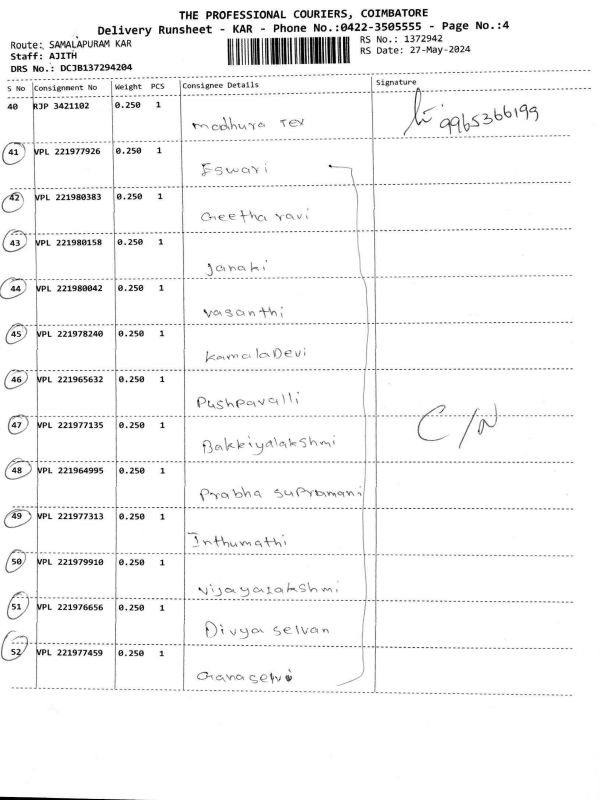 THE PROFESSIONAL COURIERS, COIMBATORE
Delivery Runsheet - KAR - Phone No.:0422-3505555 - Page No.:4
Route: SAMALAPURAM KAR
RS No.: 1372942
Staff: AJITH
RS Date: 27-May-2024
DRS No.: DCJB137294204
S No Consignment No Weight PCS Consignee Details Signature
40 RJP 3421102 0.250 1
madhura Tex 9965366199
41 VPL 221977926 0.250 1
Eswari
42 VPL 221980383 0.250 1
Geetha ravi
43 VPL 221980158 0.250 1
Janaki
44 VPL 221980042 0.250 1
vasanthi
45 VPL 221978240 0.250 1
KamalaDevi
46 VPL 221965632 0.250 1
Pushpavalli
47 VPL 221977135 0.250 1
Bakkiyalakshmi C/N
48 VPL 221964995 0.250 1
Prabha supramani
49 VPL 221977313 0.250 1
Inthumathi
50 VPL 221979910 0.250 1
vijayalakshmi
51 VPL 221976656 0.250 1
Divya selvan
52 VPL 221977459 0.250 1
Ganaselvi